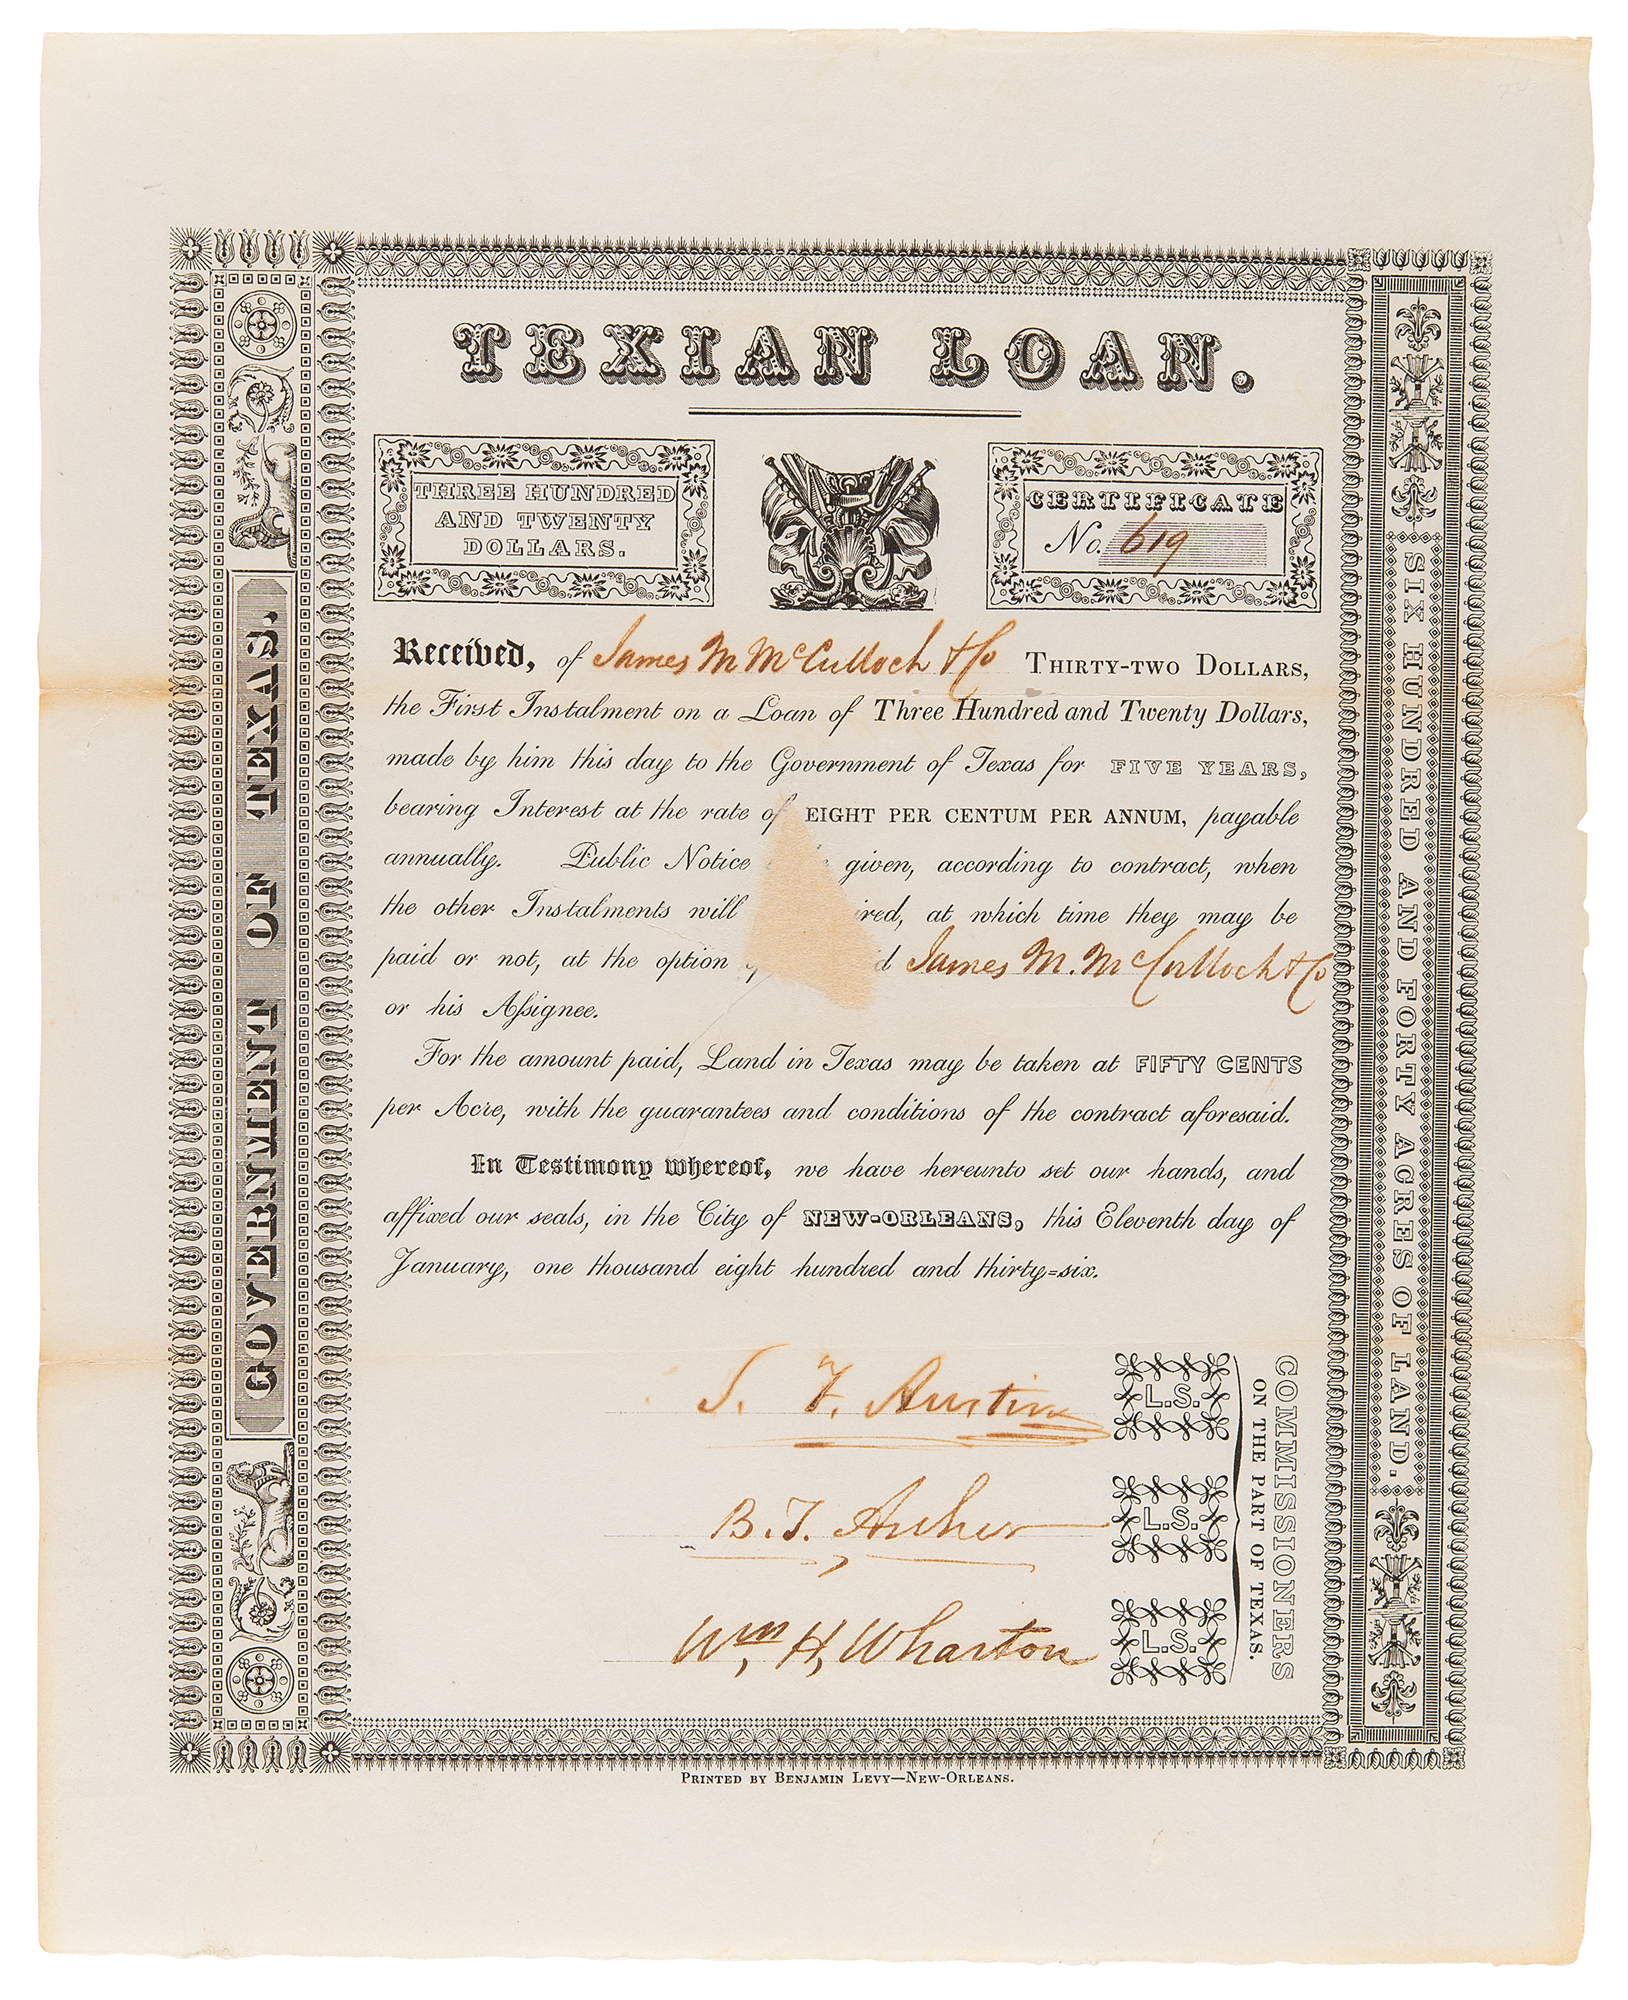 TEXIAN LOAN.
THREE HUNDRED
AND TWENTY
DOLLARS.
CERTIFICATE
No. 619
GOVERNMENT OF TEXAS.
Received, of James M McCulloch & Co THIRTY-TWO DOLLARS,
the First Instalment on a Loan of Three Hundred and Twenty Dollars,
made by him this day to the Government of Texas for FIVE YEARS,
bearing Interest at the rate of EIGHT PER CENTUM PER ANNUM, payable
annually. Public Notice given, according to contract, when
the other Instalments will ired, at which time they may be
paid or not, at the option d James M. McCulloch & Co
or his Assignee.
For the amount paid, Land in Texas may be taken at FIFTY CENTS
per Acre, with the guarantees and conditions of the contract aforesaid.
In Testimony whereof, we have hereunto set our hands, and
affixed our seals, in the City of NEW-ORLEANS, this Eleventh day of
January, one thousand eight hundred and thirty=six.
S. F. Austin L.S.
B. T. Archer L.S.
Wm. H. Wharton L.S.
COMMISSIONERS
ON THE PART OF TEXAS.
SIX HUNDRED AND FORTY ACRES OF LAND.
PRINTED BY BENJAMIN LEVY—NEW-ORLEANS.